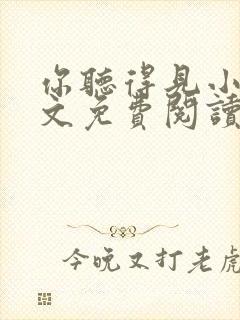 你聽得見小
文免費閱讀
今晚又打老虎